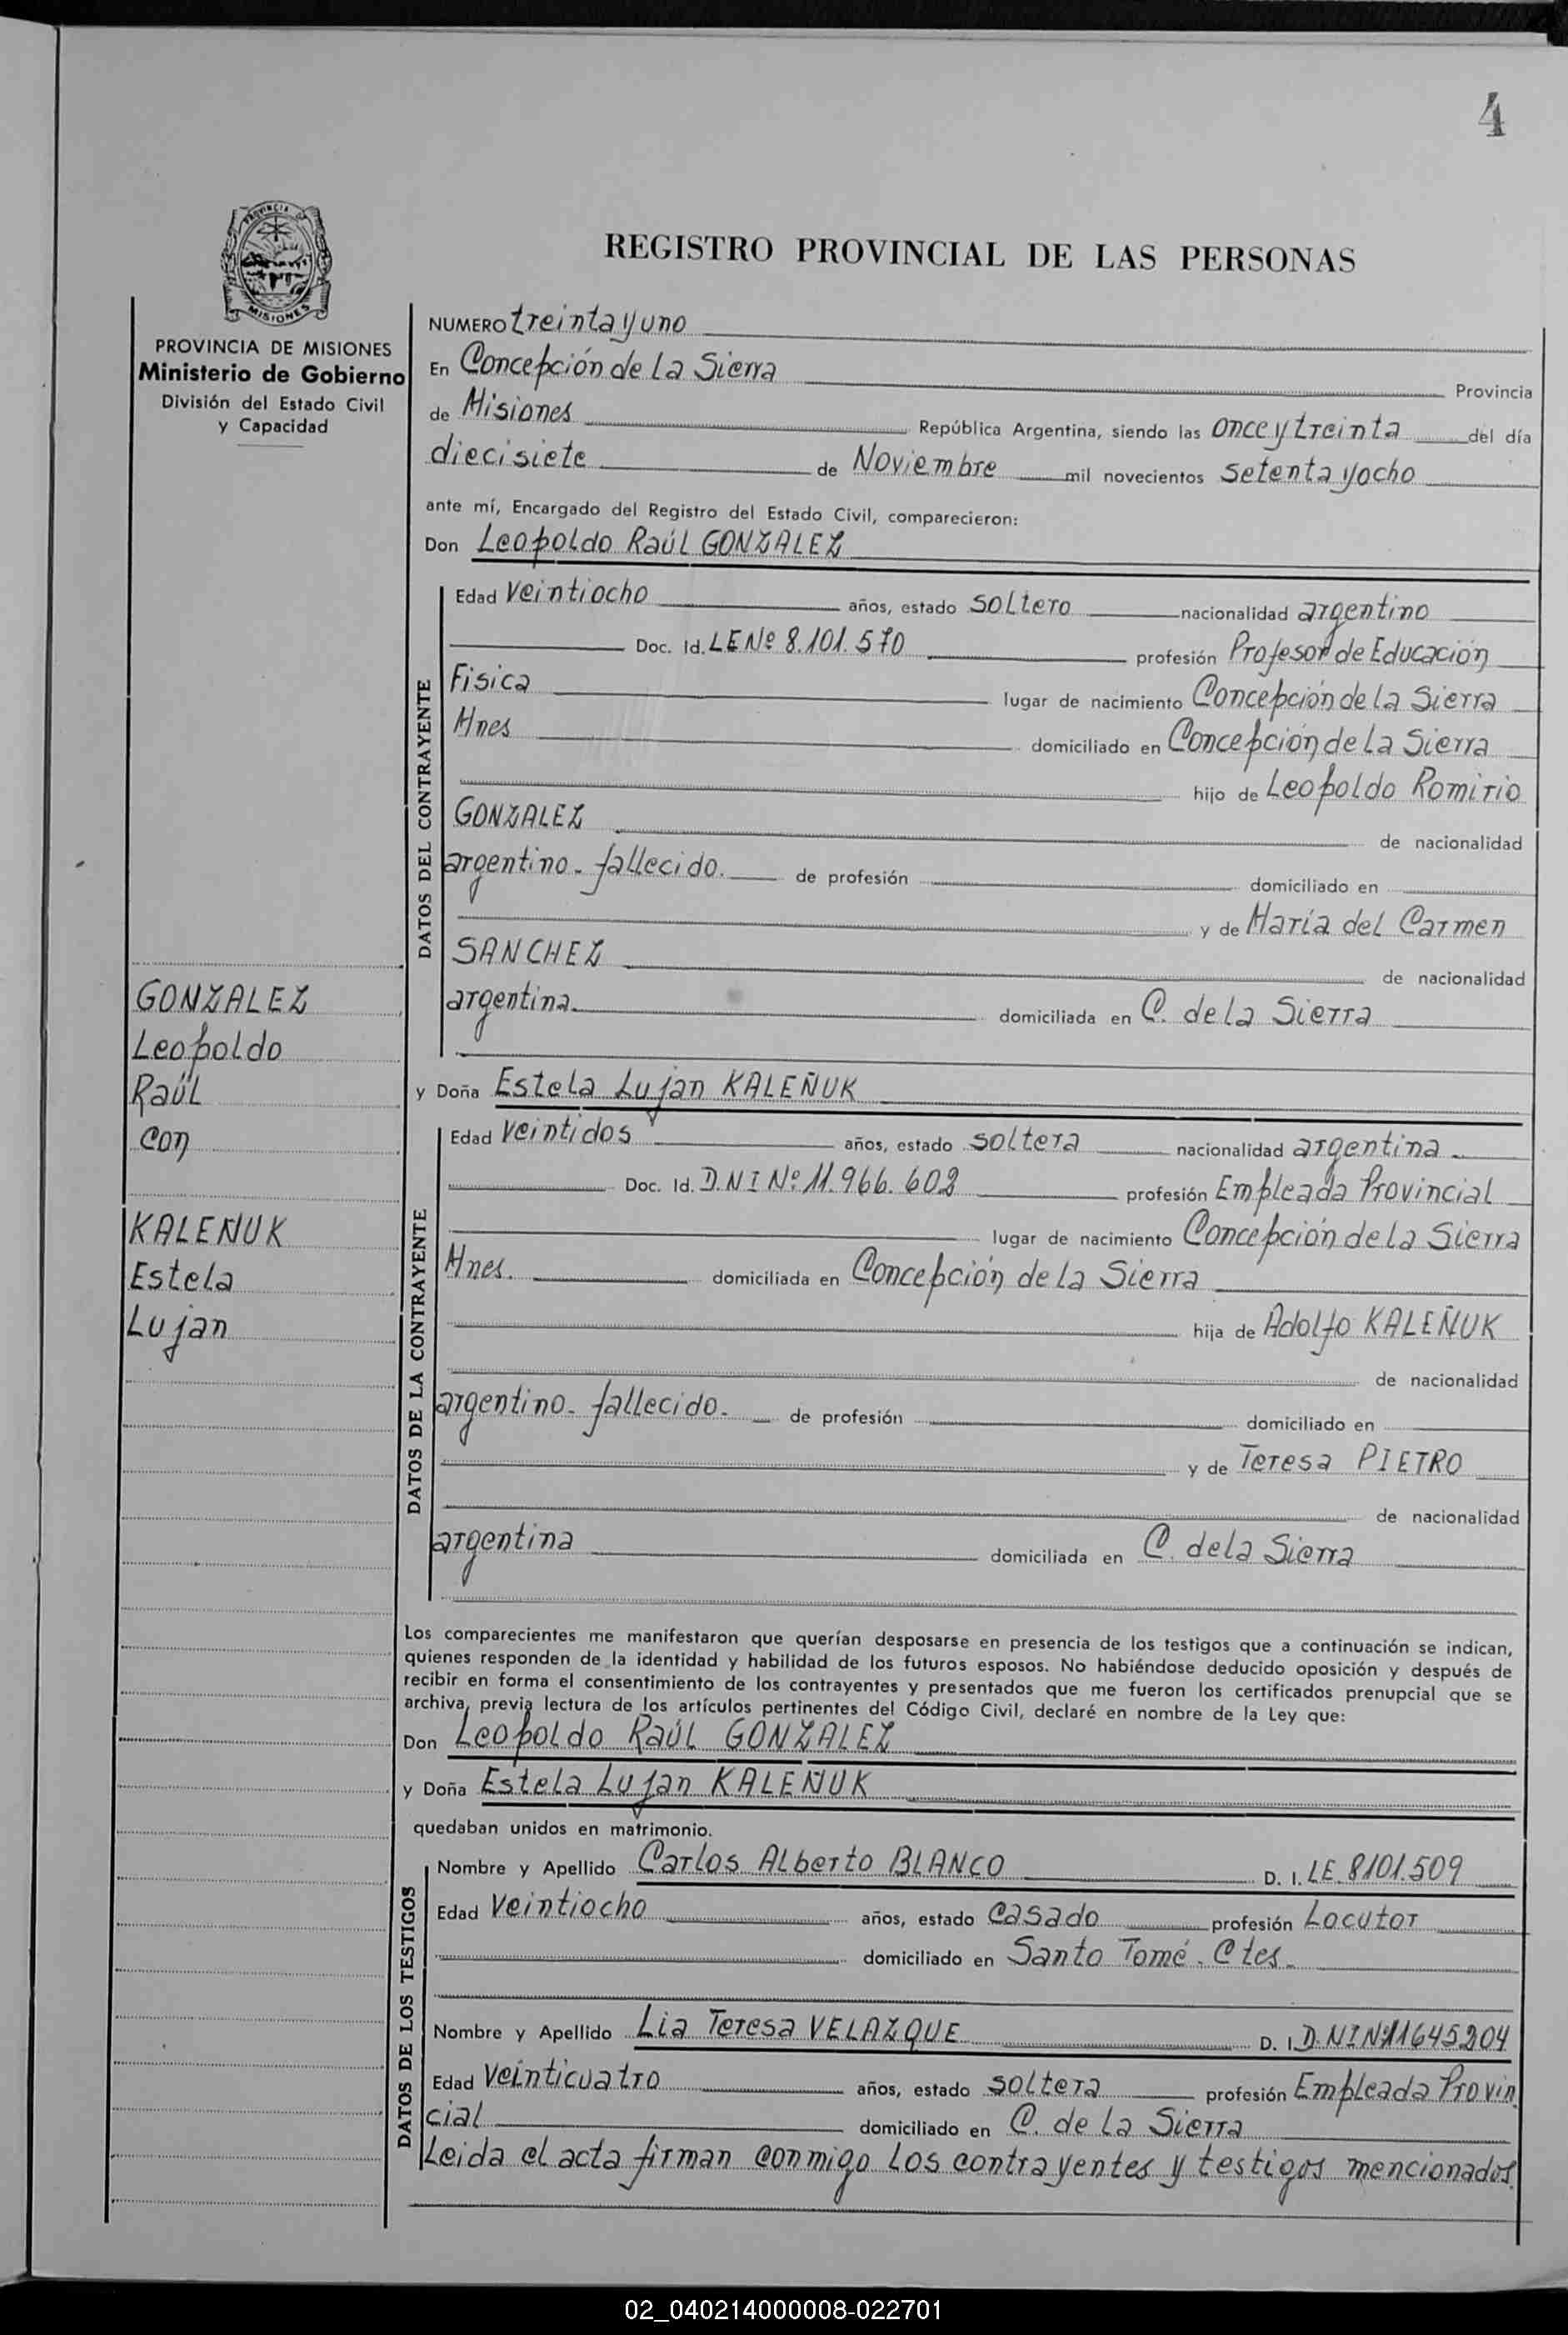 4
PROVINCIA DE
MISIONES
REGISTRO PROVINCIAL DE LAS PERSONAS
PROVINCIA DE MISIONES
Ministerio de Gobierno
División del Estado Civil
y Capacidad
NUMERO treinta y uno
En Concepción de La Sierra Provincia
de Misiones República Argentina, siendo las once y treinta del día
diecisiete de Noviembre mil novecientos setenta y ocho
ante mí, Encargado del Registro del Estado Civil, comparecieron:
Don Leopoldo Raúl GONZALEZ
DATOS DEL CONTRAYENTE
Edad veintiocho años, estado soltero nacionalidad argentino
Doc. Id. LE Nº 8.101.570 profesión Profesor de Educación
Fisica lugar de nacimiento Concepción de la Sierra
Mnes domiciliado en Concepción de La Sierra
hijo de Leopoldo Romirio
GONZALEZ de nacionalidad
argentino - fallecido. de profesión domiciliado en
y de María del Carmen
SANCHEZ de nacionalidad
argentina. domiciliada en C. de la Sierra
GONZALEZ
Leopoldo
Raúl
con
KALEÑUK
Estela
Lujan
y Doña Estela Lujan KALEÑUK
DATOS DE LA CONTRAYENTE
Edad veintidos años, estado soltera nacionalidad argentina
Doc. Id. D.N I Nº 11.966.602 profesión Empleada Provincial
lugar de nacimiento Concepción de la Sierra
Mnes. domiciliada en Concepción de la Sierra
hija de Adolfo KALEÑUK
de nacionalidad
argentino - fallecido. de profesión domiciliado en
y de Teresa PIETRO
de nacionalidad
argentina domiciliada en C. de la Sierra
Los comparecientes me manifestaron que querían desposarse en presencia de los testigos que a continuación se indican,
quienes responden de la identidad y habilidad de los futuros esposos. No habiéndose deducido oposición y después de
recibir en forma el consentimiento de los contrayentes y presentados que me fueron los certificados prenupcial que se
archiva, previa lectura de los artículos pertinentes del Código Civil, declaré en nombre de la Ley que:
Don Leopoldo Raúl GONZALEZ
y Doña Estela Lujan KALEÑUK
quedaban unidos en matrimonio.
DATOS DE LOS TESTIGOS
Nombre y Apellido Carlos Alberto BLANCO D. I. LE. 8101.509
Edad veintiocho años, estado casado profesión Locutor
domiciliado en Santo Tomé. Ctes.
Nombre y Apellido Lia Teresa VELAZQUE D. I. D.NI Nº 11645204
Edad veinticuatro años, estado soltera profesión Empleada Provin
cial domiciliado en C. de La Sierra
Leida el acta firman conmigo los contrayentes y testigos mencionados.
02_040214000008-022701